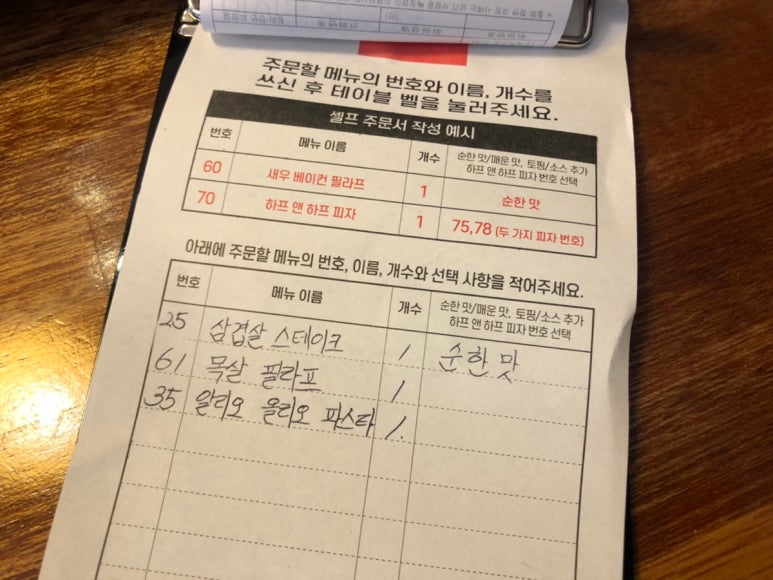 주문할 메뉴의 번호와 이름, 개수를
쓰신 후 테이블 벨을 눌러주세요.
셀프 주문서 작성 예시
번호 메뉴 이름 개수 순한 맛/매운 맛, 토핑/소스 추가
하프 앤 하프 피자 번호 선택
60 새우 베이컨 필라프 1 순한 맛
70 하프 앤 하프 피자 1 75,78 (두 가지 피자 번호)
아래에 주문할 메뉴의 번호, 이름, 개수와 선택 사항을 적어주세요.
번호 메뉴 이름 개수 순한 맛/매운 맛, 토핑/소스 추가
하프 앤 하프 피자 번호 선택
25 삼겹살 스테이크 1 순한 맛
61 목살 필라프 1
35 알리오 올리오 파스타 1.